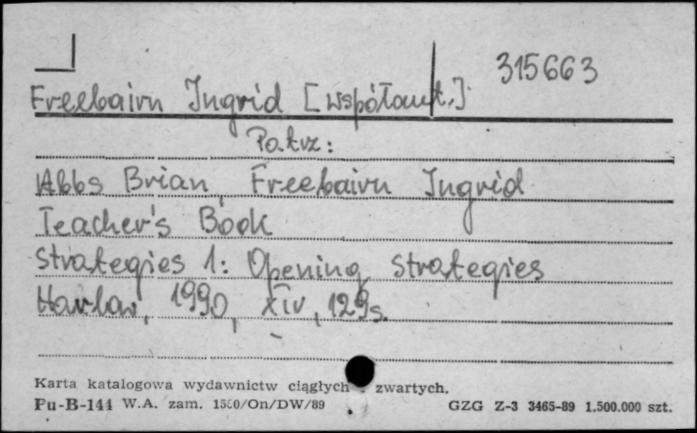 315663
Freebairn Ingrid [współaut.]
Patrz:
Abbs Brian, Freebairn Ingrid
Teacher's Book
Strategies 1: Opening strategies
Harlow, 1990, XIV, 129s.
Karta katalogowa wydawnictw ciągłych zwartych.
Pu-B-144 W.A. zam. /On/DW/89 GZG Z-3 3465-89 1.500.000 szt.